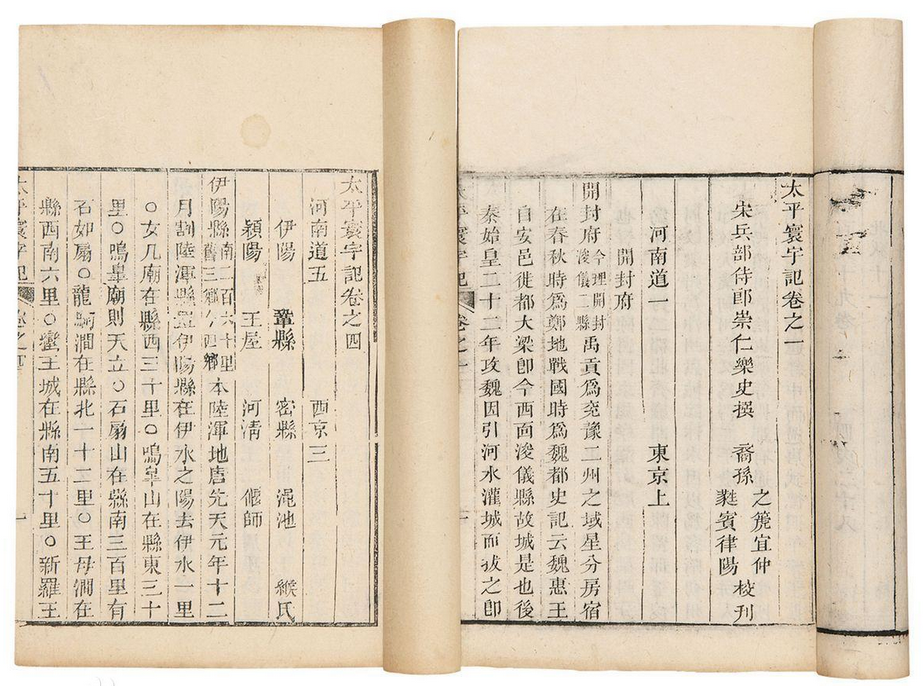 太平寰宇記卷之一
宋兵部侍郎崇仁樂史撰 裔孫 之箎宜仲 蕤賓律陽 校刊
河南道一 東京上
開封府
開封府今理開封浚儀二縣禹貢爲兖豫二州之域星分房宿
在春秋時爲鄭地戰國時爲魏都史記云魏惠王
自安邑徙都大梁卽今西面浚儀縣故城是也後
秦始皇二十二年攻魏因引河水灌城而拔之卽
太平寰宇記 卷之一 一
太平寰宇記卷之四
河南道五 西京三
伊陽 鞏縣 密縣 澠池 緱氏
潁陽 王屋 河清 偃師
伊陽縣南二百六十里舊三鄉 四鄉本陸渾地唐先天元年十二
月割陸渾縣置伊陽縣在伊水之陽去伊水一里
○女几廟在縣西三十里○鳴臯山在縣東三十
里○鳴臯廟則天立○石扇山在縣南三百里有
石如扇○龍駒澗在縣北一十二里○王母澗在
縣西南六里○蠻王城在縣南五十里○新羅王
太平寰宇記 卷之四 一